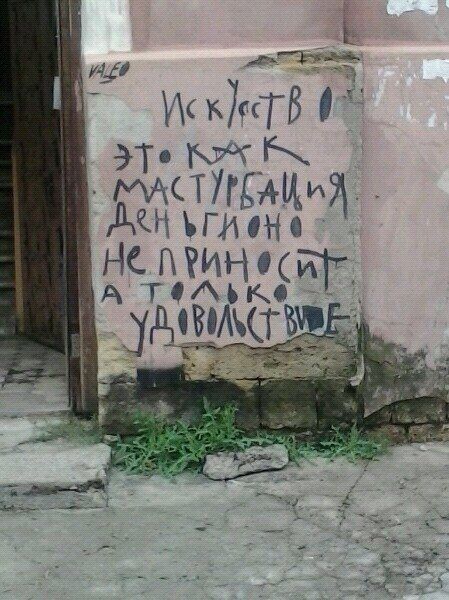 VALEO
ИскУсстВО
это КАК
МАСТУРБАЦиЯ
ДЕНЬГИ ОНО
НЕ ПРИНОСИТ
А ТОЛЬКО
УДОВОЛЬСТВИЕ